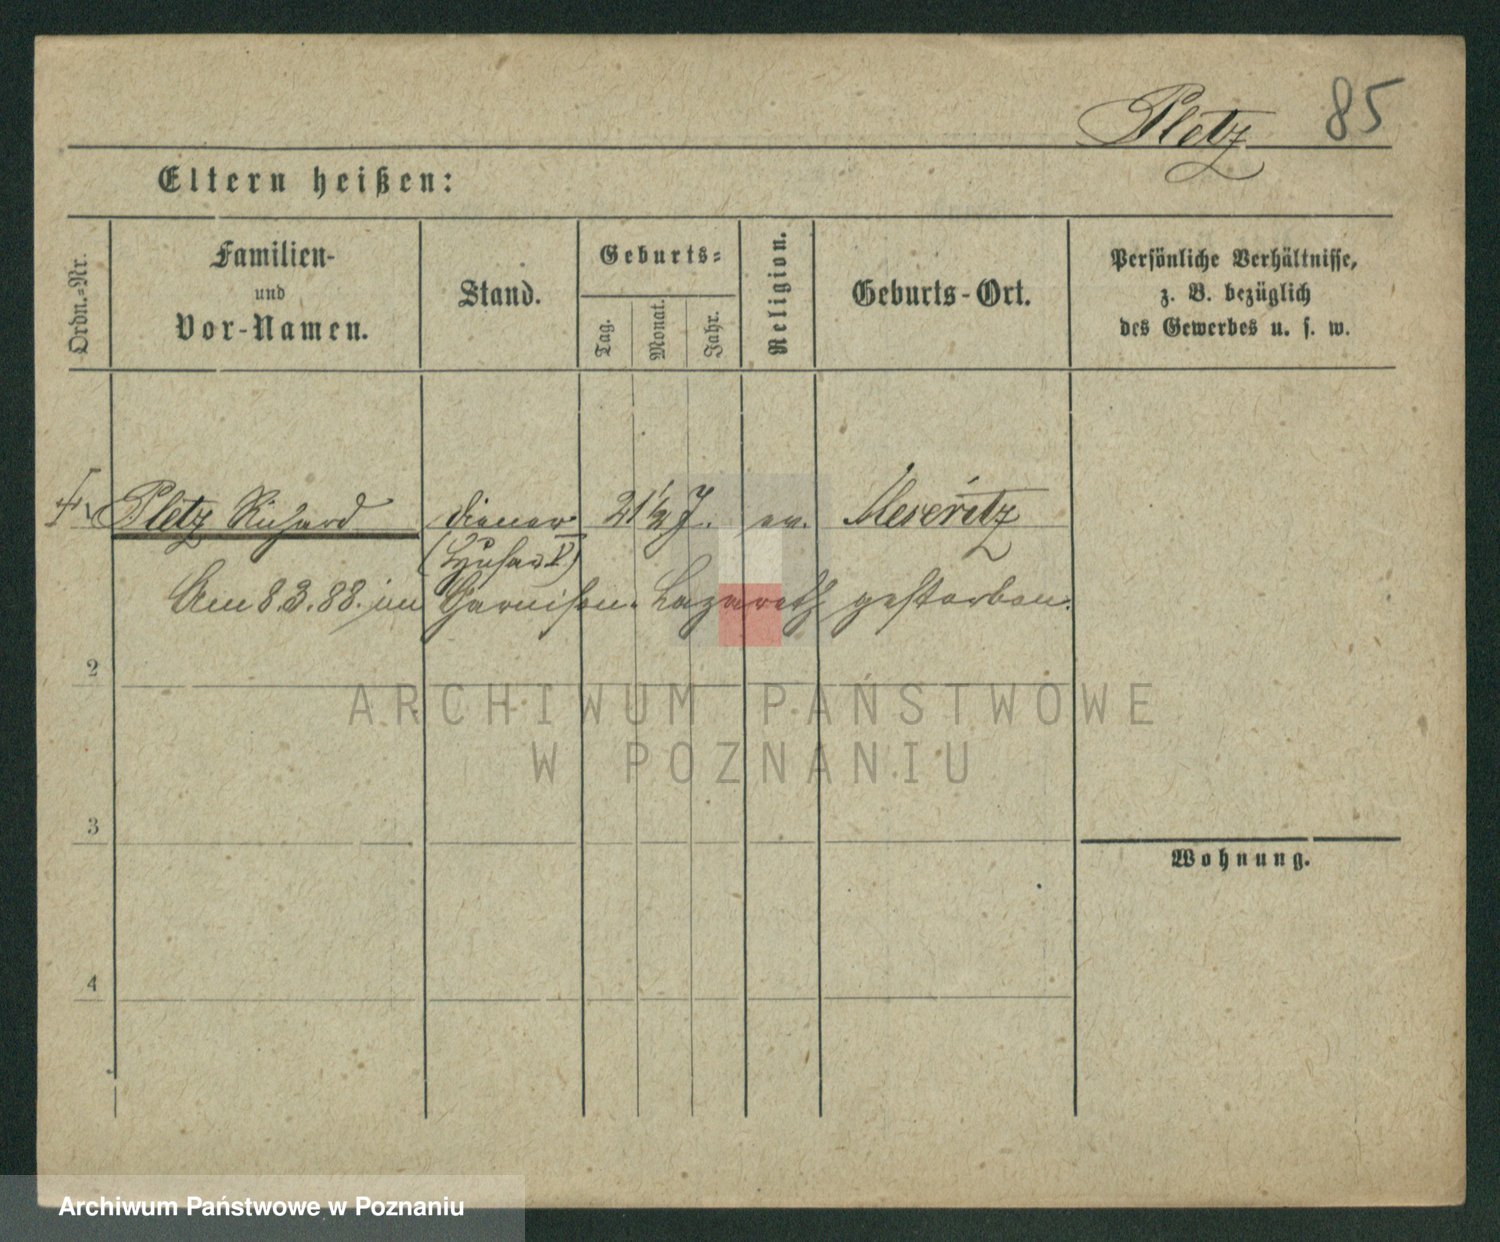 Pletz 85
Eltern heißen:
Ordn.-Nr.
Familien-
und
Vor-Namen.
Stand.
Geburts-
Tag.
Monat.
Jahr.
Religion.
Geburts-Ort.
Persönliche Verhältnisse,
z. B. bezüglich
des Gewerbes u. s. w.
Pletz Richard Diener 21 1/2 J. ev. Meseritz
(Husar V)
Am 8.3.88. im Garnison-Lazareth gestorben.
2
3
4
Wohnung.
ARCHIWUM PAŃSTWOWE
W POZNANIU
Archiwum Państwowe w Poznaniu